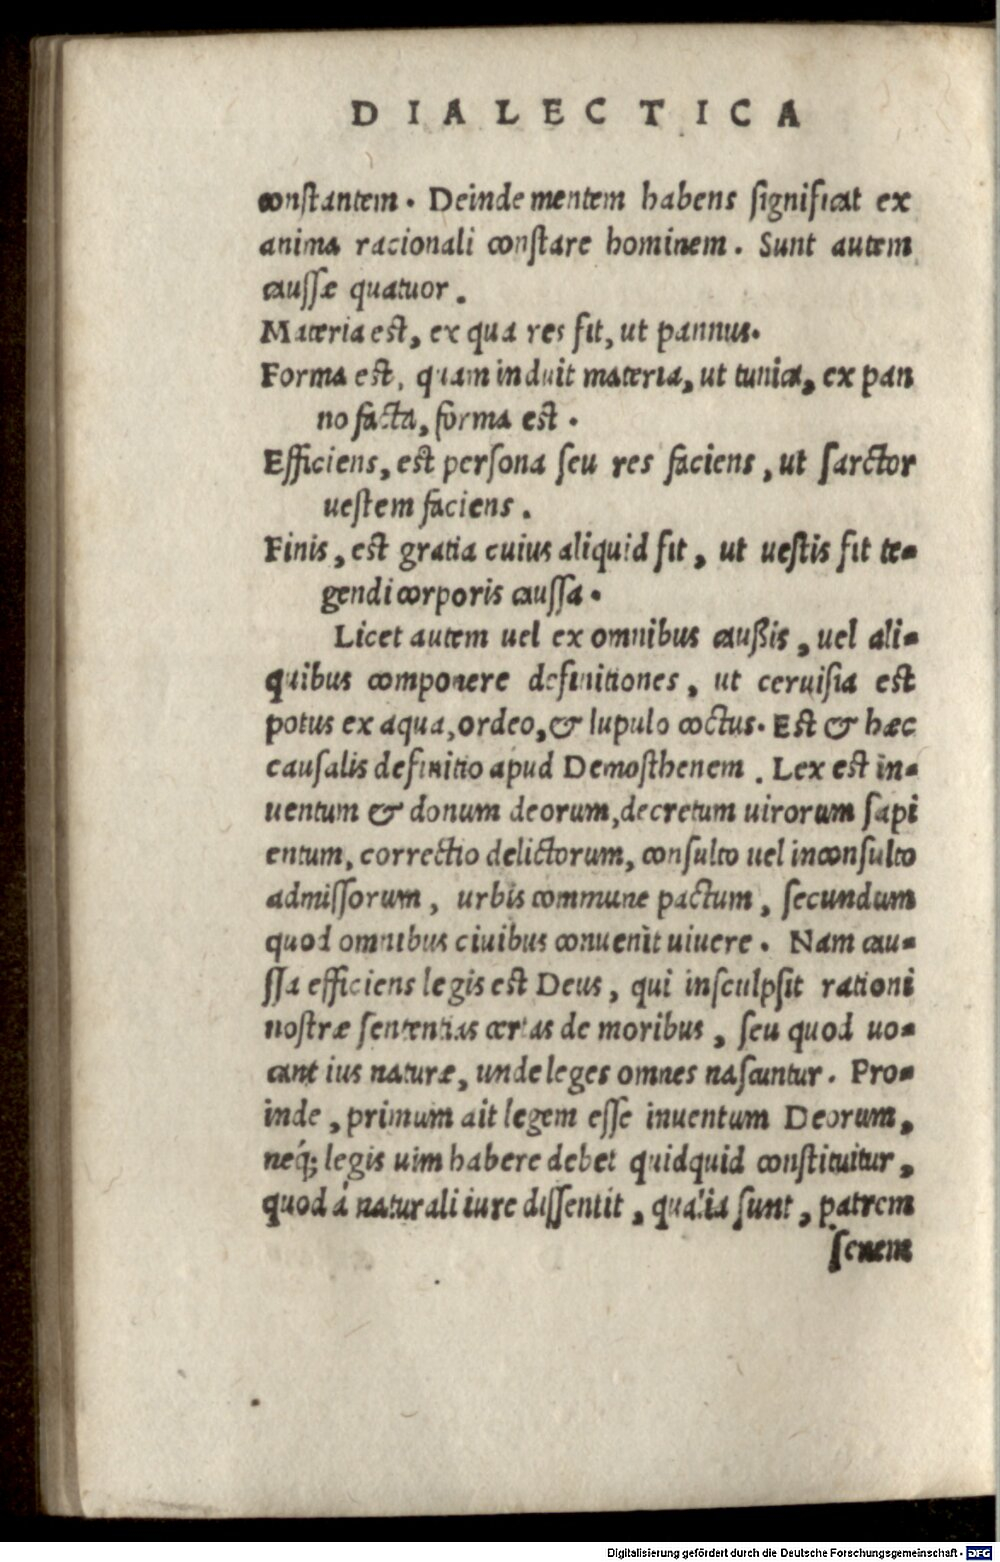 DIALECTICA
conſtantem. Deinde mentem habens ſignificat ex
anima racionali conſtare hominem. Sunt autem
cauſſæ quatuor.
Materia est, ex qua res fit, ut pannus.
Forma est, quam induit materia, ut tunica, ex pan
no facta, forma est.
Efficiens, est perſona ſeu res faciens, ut ſarctor
ueſtem faciens.
Finis, est gratia cuius aliquid fit, ut ueſtis fit te-
gendi corporis cauſſa.
Licet autem uel ex omnibus caußis, uel ali-
quibus componere definitiones, ut ceruiſia est
potus ex aqua, ordeo, & lupulo coctus. Est & hæc
cauſalis definitio apud Demoſthenem. Lex est in-
uentum & donum deorum, decretum uirorum ſapi
entum, correctio delictorum, conſulto uel inconſulto
admiſſorum, urbis commune pactum, ſecundum
quod omnibus ciuibus conuenit uiuere. Nam cau-
ſſa efficiens legis est Deus, qui inſculpſit rationi
noſtræ ſententias certas de moribus, ſeu quod uo-
cant ius naturæ, unde leges omnes naſcuntur. Pro-
inde, primum ait legem eſſe inuentum Deorum,
neq́; legis uim habere debet quidquid conſtituitur,
quod á naturali iure diſſentit, qualia ſunt, patrem
ſenem
Digitalisierung gefördert durch die Deutsche Forschungsgemeinschaft - DFG